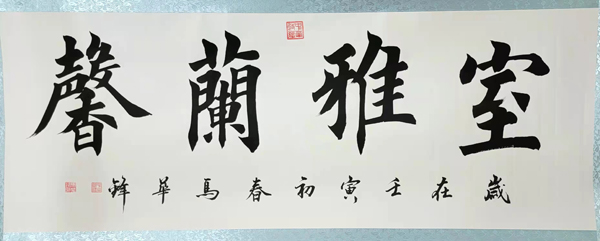 室雅蘭馨
歲在壬寅初春馬華鋒